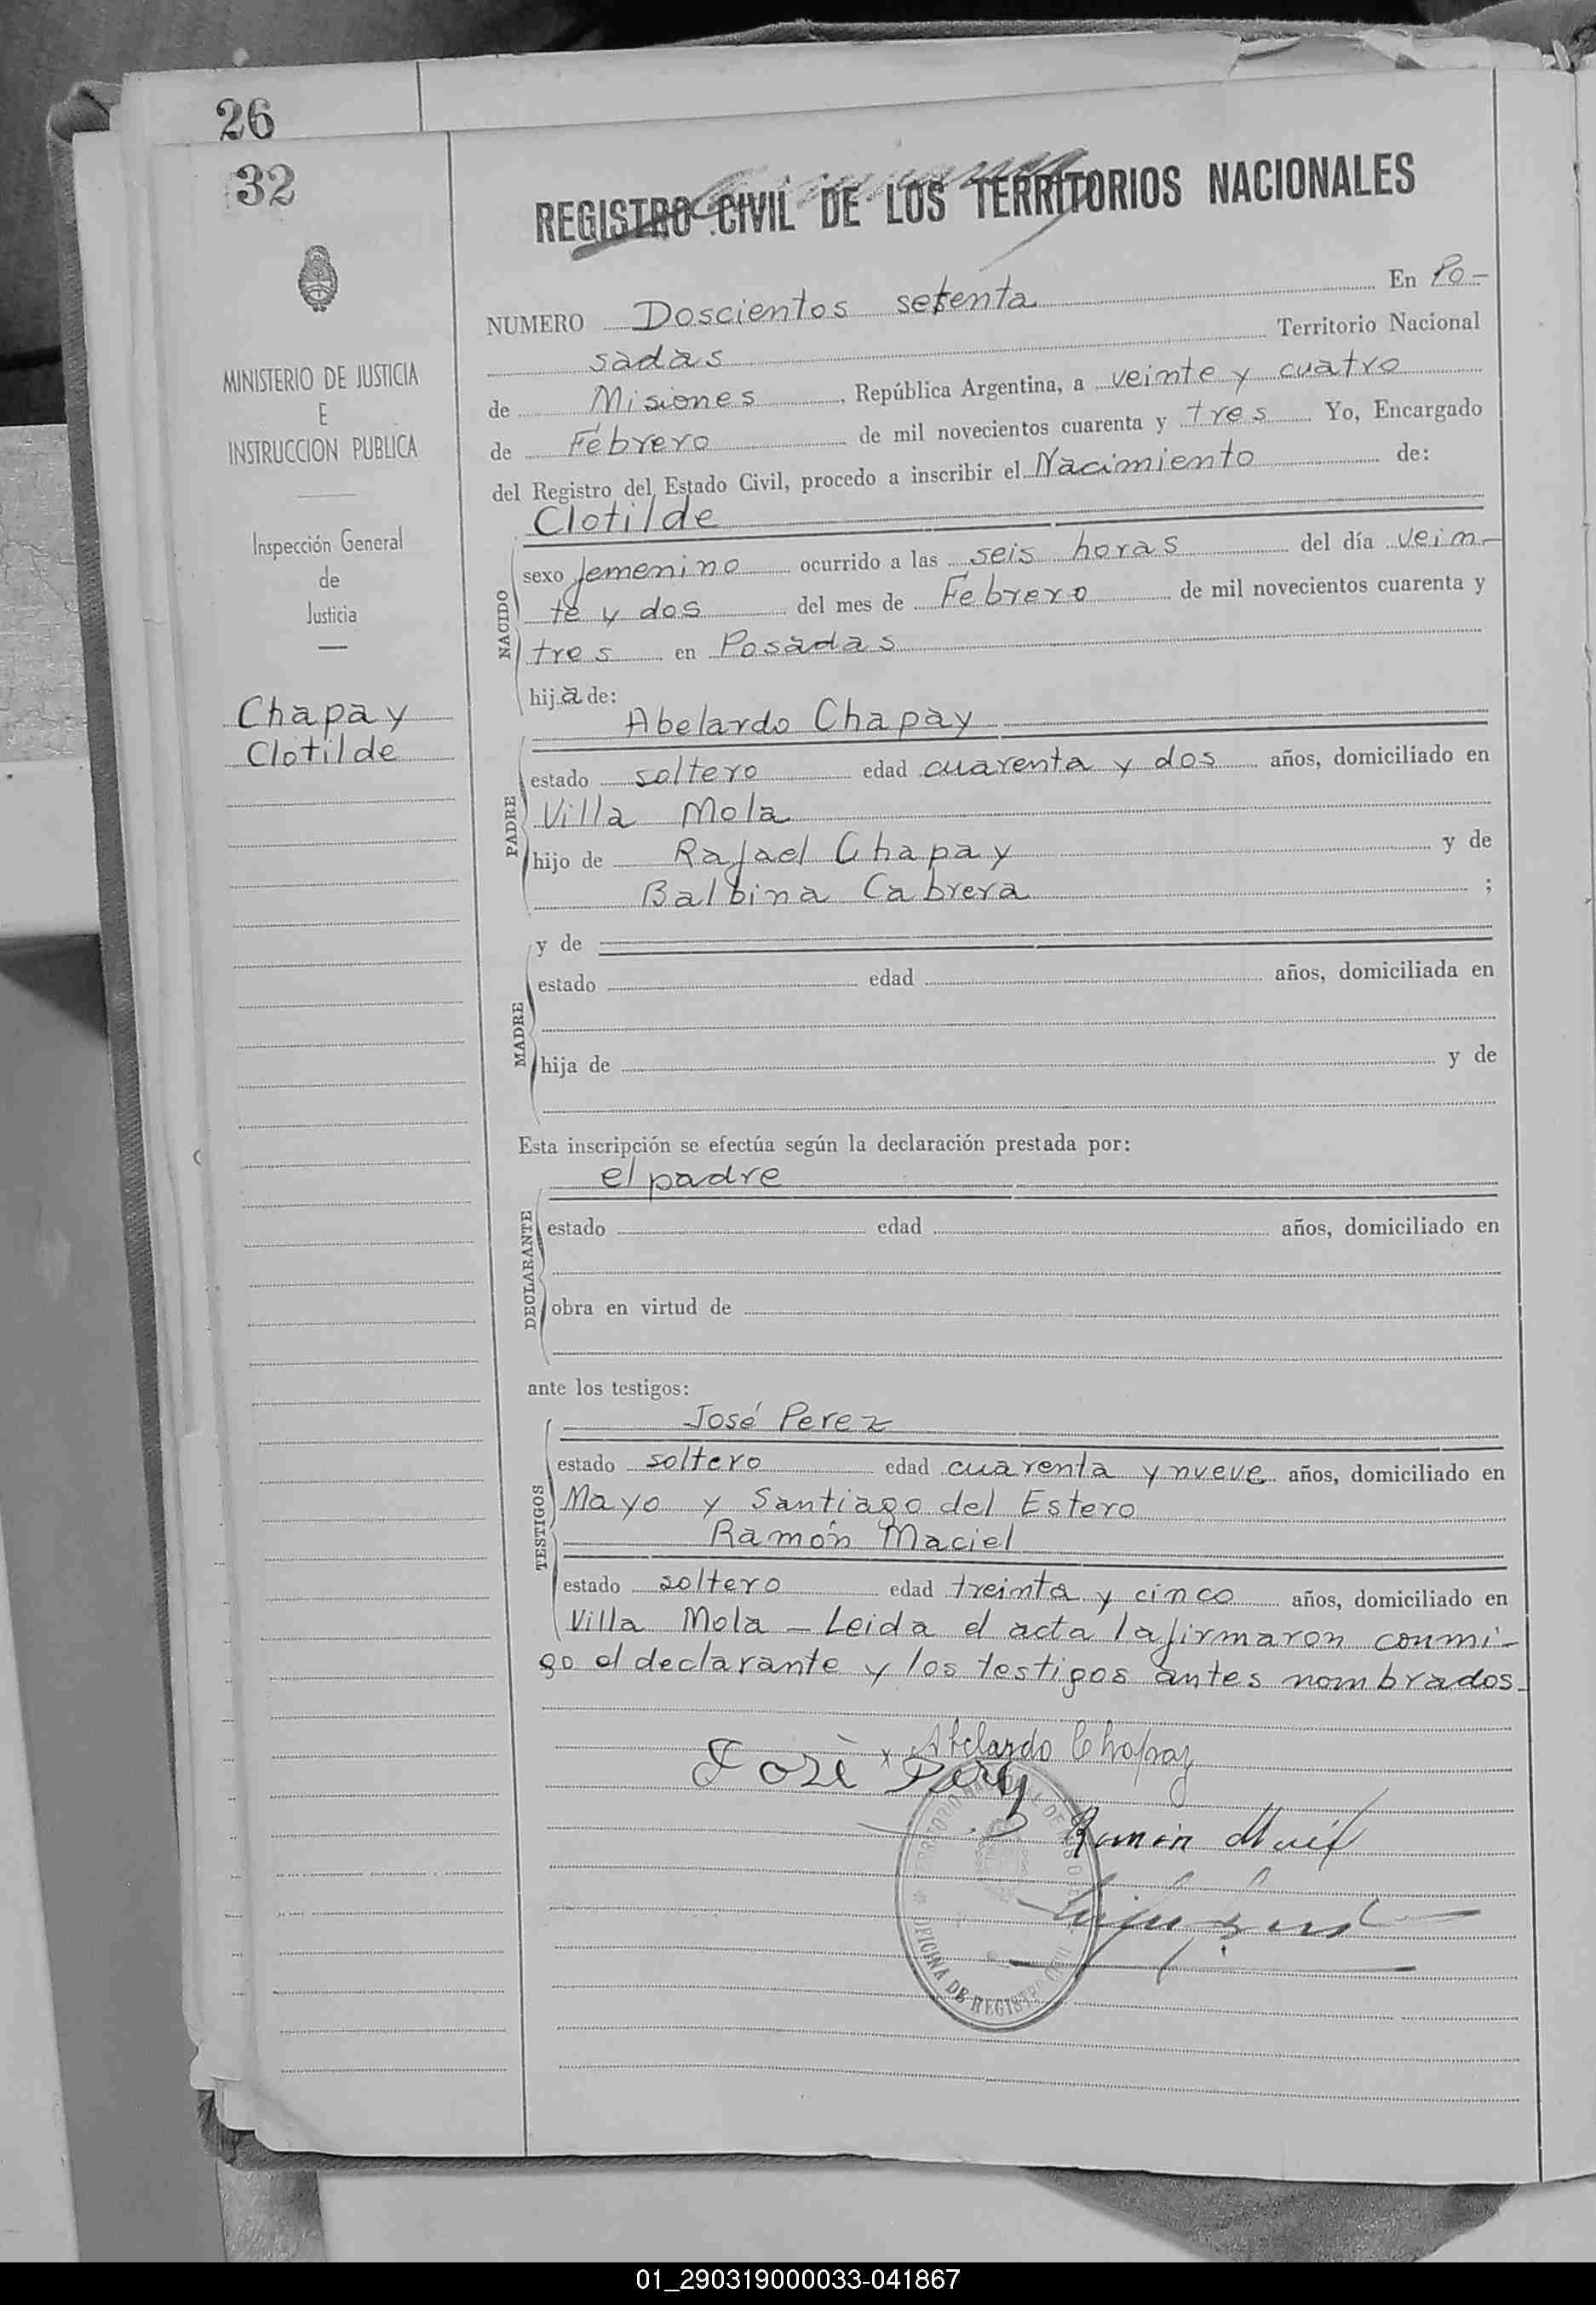 26
32
REGISTRO CIVIL DE LOS TERRITORIOS NACIONALES
MINISTERIO DE JUSTICIA
E
INSTRUCCION PUBLICA
Inspección General
de
Justicia
Chapay
Clotilde
NUMERO Doscientos setenta En Po-
sadas Territorio Nacional
de Misiones, República Argentina, a veinte y cuatro
de Febrero de mil novecientos cuarenta y tres Yo, Encargado
del Registro del Estado Civil, procedo a inscribir el Nacimiento de:
NACIDO
Clotilde
sexo femenino ocurrido a las seis horas del día vein-
te y dos del mes de Febrero de mil novecientos cuarenta y
tres en Posadas
hija de:
PADRE
Abelardo Chapay
estado soltero edad cuarenta y dos años, domiciliado en
Villa Mola
hijo de Rafael Chapay y de
Balbina Cabrera ;
MADRE
y de
estado edad años, domiciliada en
hija de y de
Esta inscripción se efectúa según la declaración prestada por:
DECLARANTE
el padre
estado edad años, domiciliado en
obra en virtud de
ante los testigos:
TESTIGOS
José Perez
estado soltero edad cuarenta y nueve años, domiciliado en
Mayo y Santiago del Estero
Ramón Maciel
estado soltero edad treinta y cinco años, domiciliado en
Villa Mola - Leida el acta la firmaron conmi-
go el declarante y los testigos antes nombrados.
x Abelardo Chapay
José Perez
Ramón
OFICINA DE REGISTRO CIVIL
01_290319000033-041867